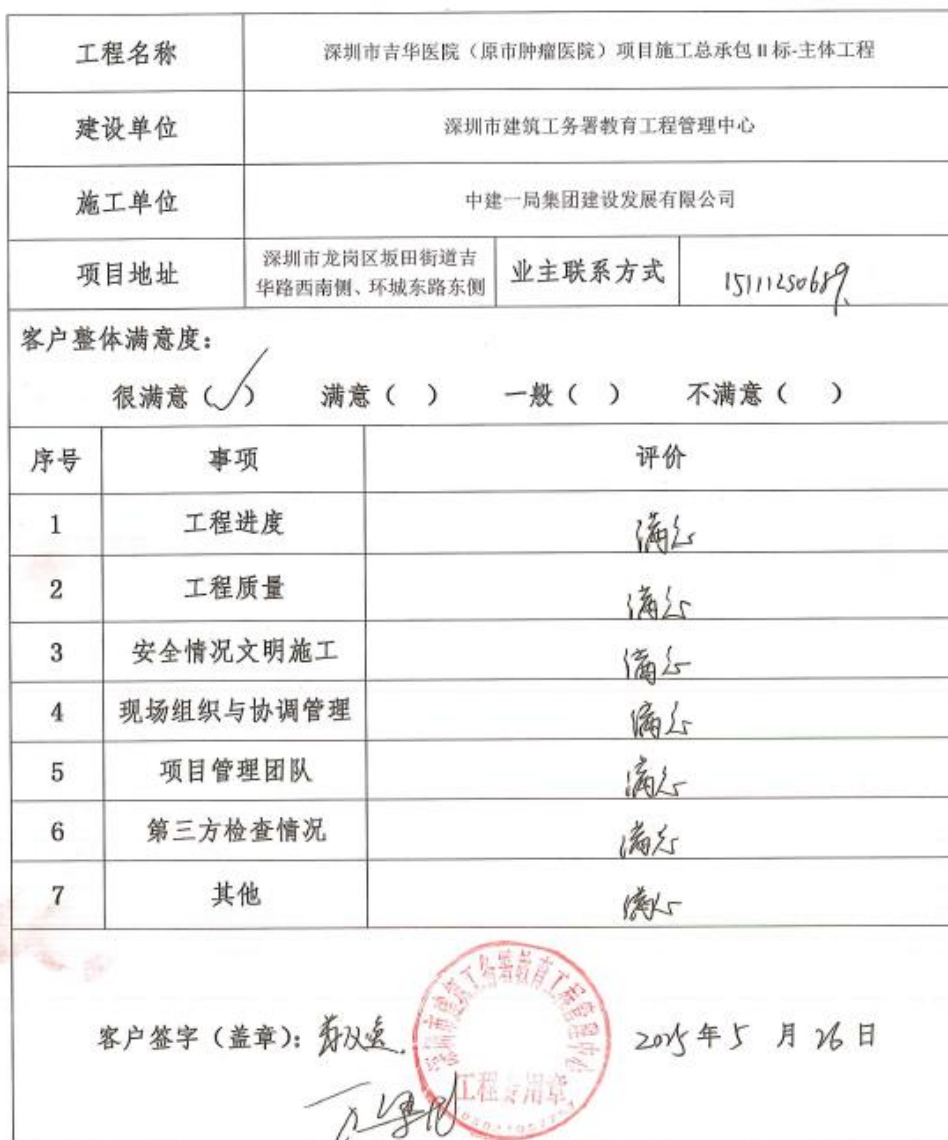 工程名称 深圳市吉华医院（原市肿瘤医院）项目施工总承包 II 标-主体工程
建设单位 深圳市建筑工务署教育工程管理中心
施工单位 中建一局集团建设发展有限公司
项目地址 深圳市龙岗区坂田街道吉
华路西南侧、环城东路东侧 业主联系方式 15111250689
客户整体满意度：
很满意（✓） 满意（ ） 一般（ ） 不满意（ ）
序号 事项 评价
1 工程进度 满意
2 工程质量 满意
3 安全情况文明施工 满意
4 现场组织与协调管理 满意
5 项目管理团队 满意
6 第三方检查情况 满意
7 其他 满意
深圳市建筑工务署教育工程管理中心
工程专用章
客户签字（盖章）： 2025 年 5 月 26 日